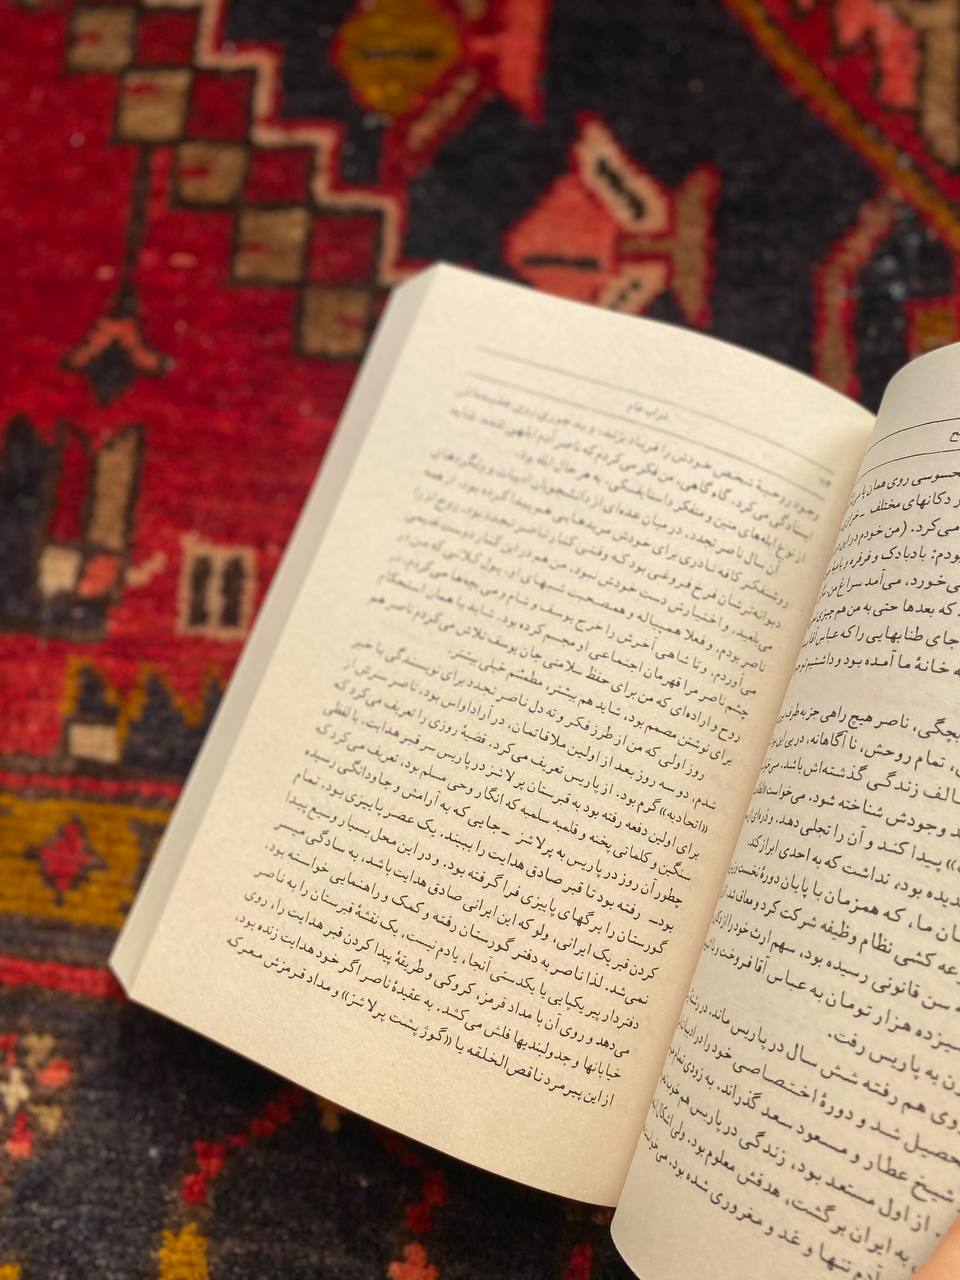 شراب خام
وجود روحیهٔ شخص خودش را فریاد بزند، و بد جوری روی عقیده‌اش
ایستادگی می‌کرد. گاه گاهی، من فکر می‌کردم که ناصر آدم ابلهی شده. شاید
از نوع ابله‌های متین و متفکر داستایفسکی. به هر حال ابله بود.
آن سال ناصر تجدد، در میان عده‌ای از دانشجویان ادبیات و ولگردهای
روشنفکر کافه نادری برای خودش مریدهایی هم پیدا کرده بود. از همه
دیوانه‌ترشان فرخ فروغی بود که وقتی کنار ناصر تجدد بود، روح او را
می‌بلعید، و اختیارش دست خودش نبود. من هم در این کنار دوست قدیمی
ناصر بودم، و فعلا همپیاله و همصحبت شبهای او. پول کلانی که من در
می‌آوردم، و تا شاهی آخرش را خرج یوسف و شام و می بچه‌ها می‌کردم، در
چشم ناصر مرا قهرمان اجتماعی او مجسم کرده بود. شاید با همان استحکام
روح و اراده‌ای که من برای حفظ سلامتی جان یوسف تلاش می‌کردم ناصر هم
برای نوشتن مصمم بود، شاید هم بیشتر، مطمئنم خیلی بیشتر.
روز اولی که من از طرز فکر و ته دل ناصر تجدد برای نویسندگی با خبر
شدم، دو سه روز بعد از اولین ملاقاتمان، در آراداواس بود. ناصر سرش از
«اتحادیه» گرم بود. از پاریس تعریف می‌کرد. قصهٔ روزی را تعریف می‌کرد که
برای اولین دفعه رفته بود به قبرستان پر لاشز در پاریس سر قبر هدایت. با لفظی
سنگین و کلماتی پخته و قلمبه سلمبه که انگار وحی مسلم بود، تعریف می‌کرد که
چطور آن روز در پاریس به پر لاشز ــ جایی که به آرامش و جاودانگی رسیده
بود ــ رفته بود تا قبر صادق هدایت را ببیند. یک عصر پاییزی بود. تمام
گورستان را برگهای پاییزی فرا گرفته بود. و در این محل بسیار وسیع پیدا
کردن قبر یک ایرانی، ولو که این ایرانی صادق هدایت باشد، به سادگی میسر
نمی‌شد. لذا ناصر به دفتر گورستان رفته و کمک و راهنمایی خواسته بود.
دفتردار پیر یکپایی یا یکدستی آنجا، یادم نیست، یک نقشهٔ قبرستان را به ناصر
می‌دهد و روی آن با مداد قرمز، کروکی و طریقهٔ پیدا کردن قبر هدایت را، روی
خیابانها و جدولبندیها قلش می‌کشد. به عقیدهٔ ناصر اگر خود هدایت زنده بود،
از این پیرمرد ناقص‌الخلقه یا «گوژپشت پر لاشز» و مداد قرمزش معرکه
حسوسی روی همان
دکانهای مختلف
می‌کرد. (من خودم در این
بودم: بادبادک و فرفره و
می‌خورد، می‌آمد سراغ من
که بعدها حتی به من هم چیزی
جای طنابهایی را که عباس آقا
خانهٔ ما آمده بود و داشتیم
بچگی، ناصر هیچ راهی جز به طرف
تمام روحش، ناآگاهانه، در پی این
الف زندگی گذشته‌اش باشد. می‌خواست
وجودش شناخته شود. می‌خواست
پیدا کند و آن را تجلی دهد.
دیده بود، نداشت که به احدی ابراز کند.
ما، که همزمان با پایان دورهٔ نخست
عه کشی نظام وظیفه شرکت کرد و معاف شد
سن قانونی رسیده بود، سهم ارث خود را از
سیزده هزار تومان به عباس آقا فروخت و
به پاریس رفت.
روی هم رفته شش سال در پاریس ماند.
تحصیل شد و دورهٔ اختصاصی خود را در ادبیات
شیخ عطار و مسعود سعد گذراند. به زودی تمام
از اول مستعد بود، زندگی در پاریس هم خوب
به ایران برگشت، هدفش معلوم بود. ولی اشکال
آدم تنها و غد و مغروری شده بود. می‌خواست